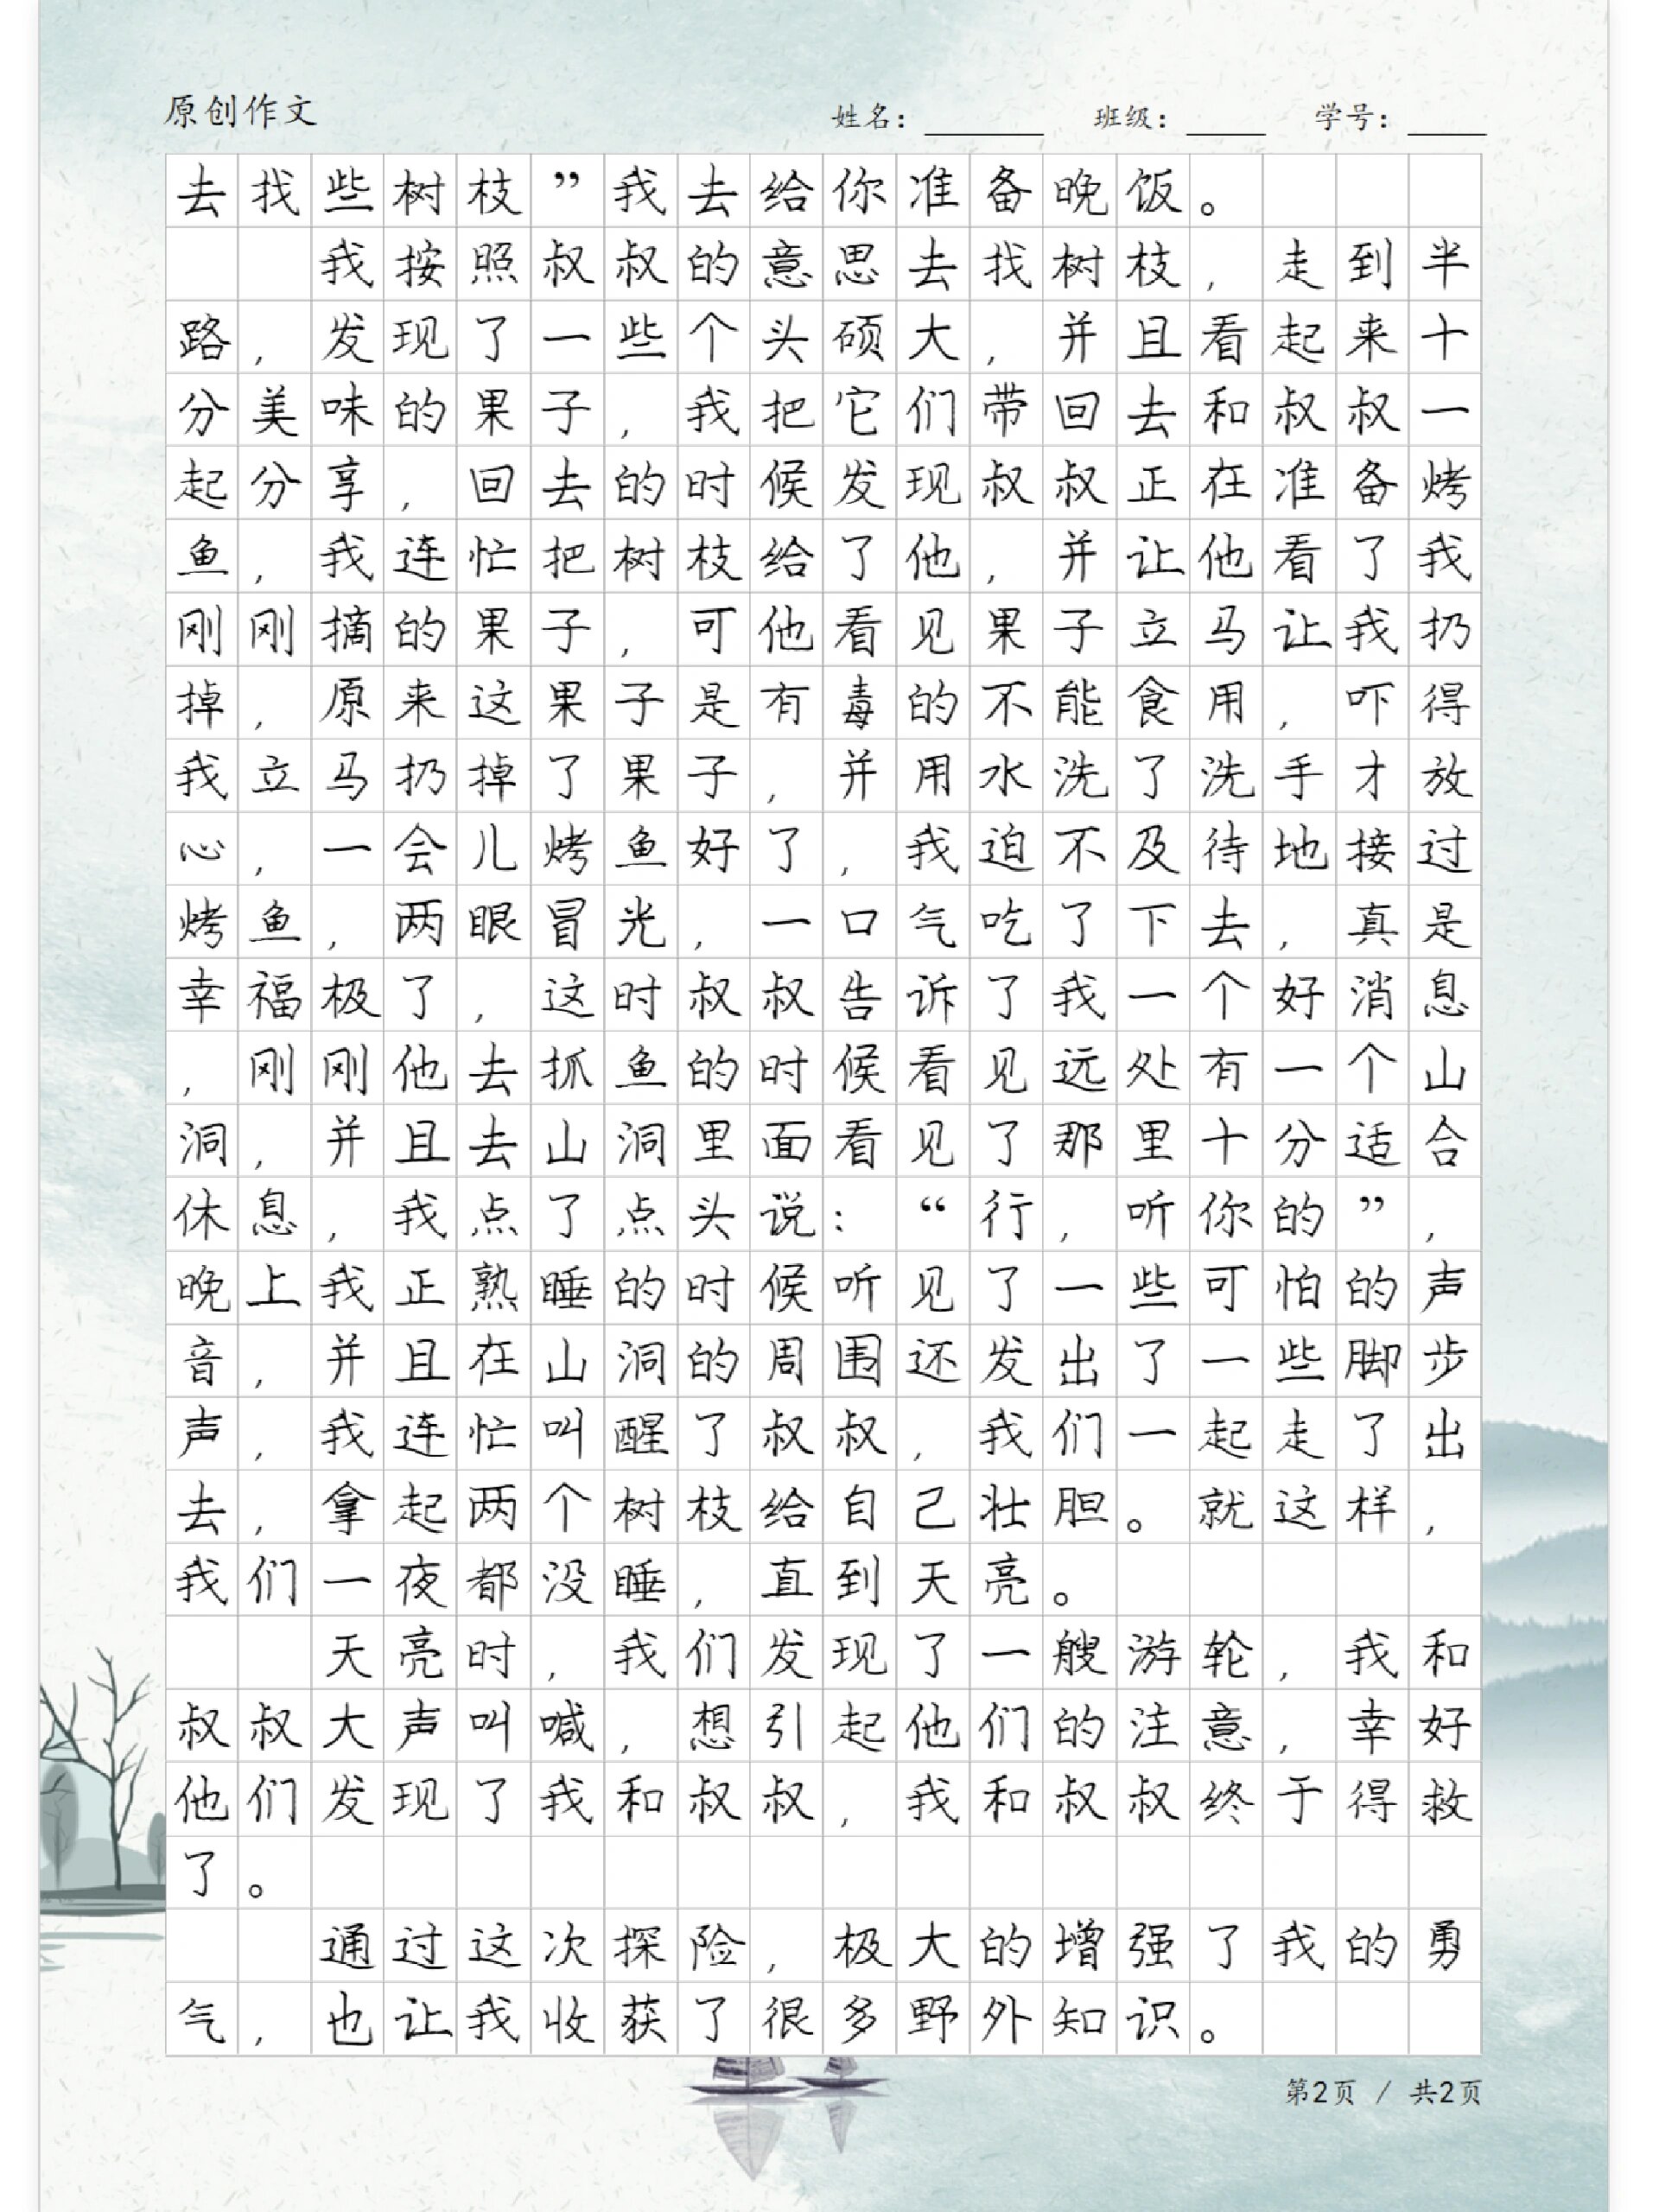 原创作文 姓名：______ 班级：____ 学号：____
去找些树枝”我去给你准备晚饭。
我按照叔叔的意思去找树枝，走到半
路，发现了一些个头硕大，并且看起来十
分美味的果子，我把它们带回去和叔叔一
起分享，回去的时候发现叔叔正在准备烤
鱼，我连忙把树枝给了他，并让他看了我
刚刚摘的果子，可他看见果子立马让我扔
掉，原来这果子是有毒的不能食用，吓得
我立马扔掉了果子，并用水洗了洗手才放
心，一会儿烤鱼好了，我迫不及待地接过
烤鱼，两眼冒光，一口气吃了下去，真是
幸福极了，这时叔叔告诉了我一个好消息
，刚刚他去抓鱼的时候看见远处有一个山
洞，并且去山洞里面看见了那里十分适合
休息，我点了点头说：“行，听你的”，
晚上我正熟睡的时候听见了一些可怕的声
音，并且在山洞的周围还发出了一些脚步
声，我连忙叫醒了叔叔，我们一起走了出
去，拿起两个树枝给自己壮胆。就这样，
我们一夜都没睡，直到天亮。
天亮时，我们发现了一艘游轮，我和
叔叔大声叫喊，想引起他们的注意，幸好
他们发现了我和叔叔，我和叔叔终于得救
了。
通过这次探险，极大的增强了我的勇
气，也让我收获了很多野外知识。
第2页 / 共2页